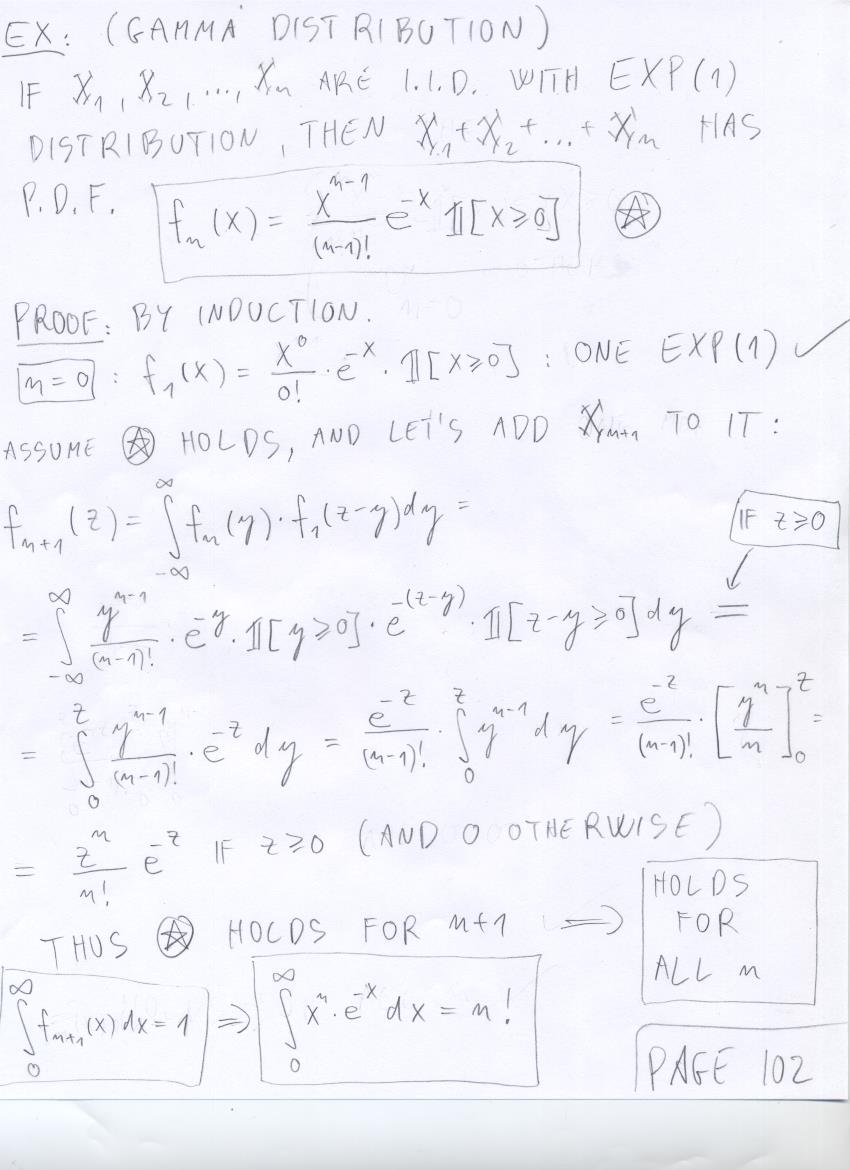 EX: (GAMMA DISTRIBUTION)
IF X₁, X₂, ..., Xₙ ARE I.I.D. WITH EXP(1)
DISTRIBUTION, THEN X₁+X₂+...+Xₙ HAS
P.D.F. fₙ(x) = x^(n-1)/(n-1)! e^(-x) 𝟙[x≥0] ⍟
PROOF: BY INDUCTION.
n=0 : f₁(x) = x^0/0! · e^(-x) · 𝟙[x≥0] : ONE EXP(1) ✓
ASSUME ⍟ HOLDS, AND LET'S ADD Xₙ₊₁ TO IT:
fₙ₊₁(z) = ∫_{-∞}^{∞} fₙ(y)·f₁(z-y)dy =
IF z≥0
= ∫_{-∞}^{∞} y^(n-1)/(n-1)! · e^(-y) · 𝟙[y≥0] · e^(-(z-y)) · 𝟙[z-y≥0] dy =
= ∫_0^z y^(n-1)/(n-1)! · e^(-z) dy = e^(-z)/(n-1)! · ∫_0^z y^(n-1) dy = e^(-z)/(n-1)! · [y^n/n]_0^z =
= z^n/n! e^(-z) IF z≥0 (AND 0 OTHERWISE)
THUS ⍟ HOLDS FOR n+1 ⟹
HOLDS
FOR
ALL n
∫_0^∞ fₙ₊₁(x)dx = 1 ⟹ ∫_0^∞ x^n · e^(-x) dx = n!
PAGE 102